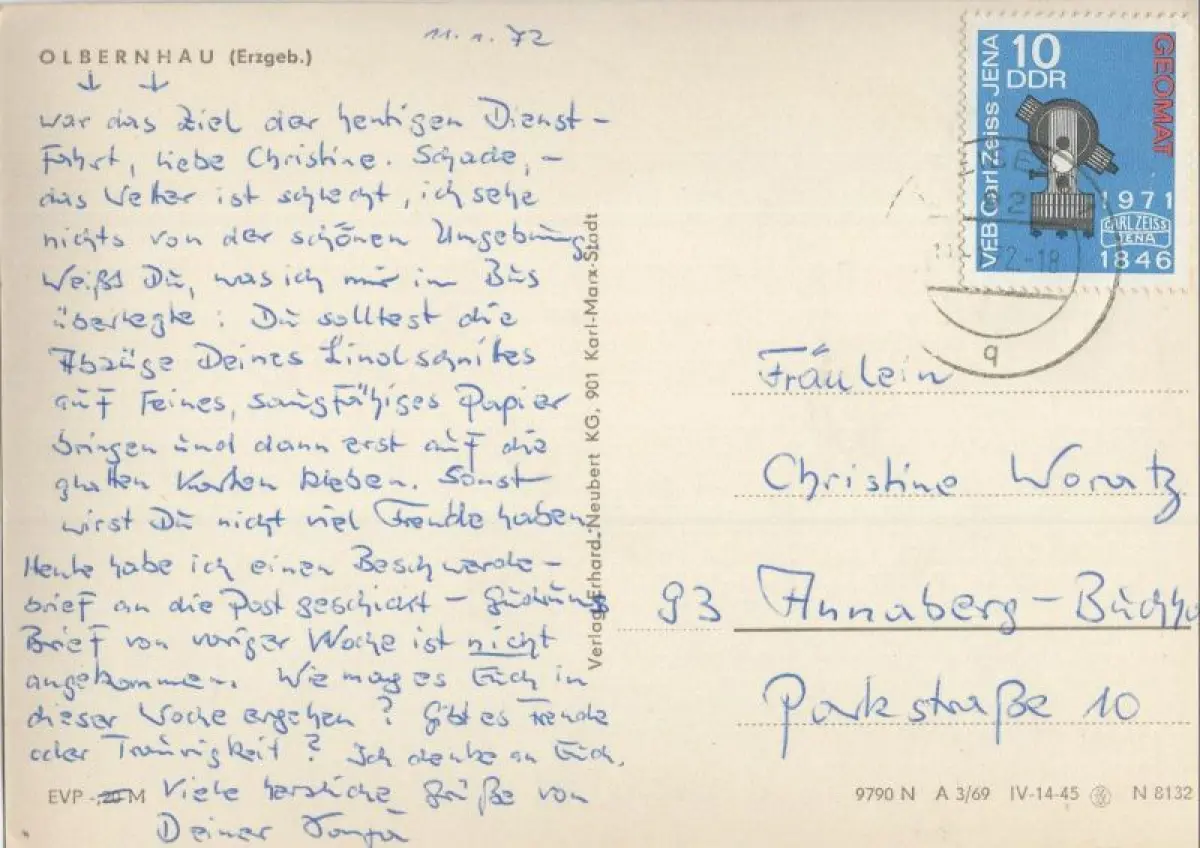 11.1.72
OLBERNHAU (Erzgeb.)
war das Ziel der heutigen Dienst-
fahrt, liebe Christine. Schade, -
das Wetter ist schlecht, ich sehe
nichts von der schönen Umgebung.
Weißt Du, was ich mir im Bus
überlegte: Du solltest die
Abzüge Deines Linolschnittes
auf feines, saugfähiges Papier
bringen und dann erst auf die
glatten Karten kleben. Sonst
wirst Du nicht viel Freude haben.
Heute habe ich einen Beschwerde-
brief an die Post geschickt - Gudruns
Brief von voriger Woche ist nicht
angekommen. Wie mag es Euch in
dieser Woche ergehen? Gibt es Freude
oder Traurigkeit? Ich denke an Euch.
Viele herzliche Grüße von
Deiner
EVP -,20 M
Verlag Erhard Neubert KG, 901 Karl-Marx-Stadt
10
DDR
GEOMAT
VEB Carl Zeiss JENA
1971
CARL ZEISS
JENA
1846
72-18
q
Fräulein
Christine Woratz
93 Annaberg-Buchho
Parkstraße 10
9790 N A 3/69 IV-14-45 N 8132